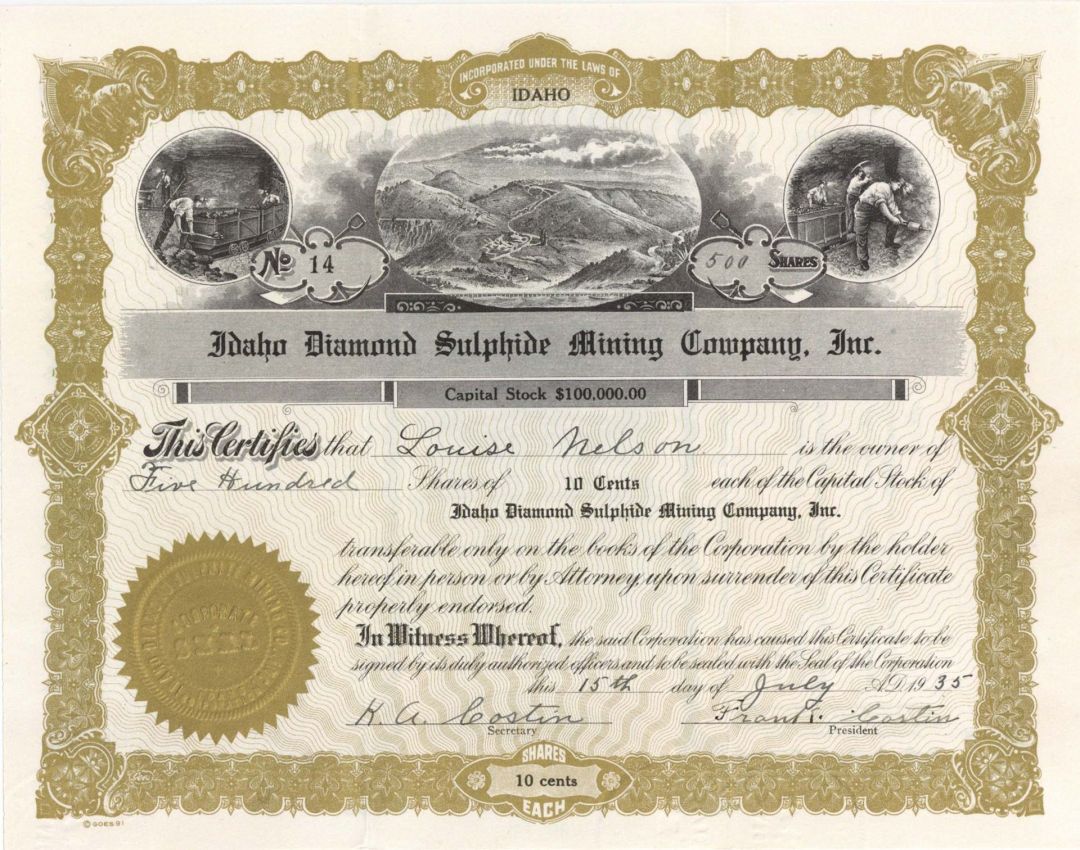 INCORPORATED UNDER THE LAWS OF
IDAHO
No 14
500 SHARES
Idaho Diamond Sulphide Mining Company, Inc.
Capital Stock $100,000.00
This Certifies that Louise Nelson is the owner of
Five Hundred Shares of 10 Cents each of the Capital Stock of
Idaho Diamond Sulphide Mining Company, Inc.
transferable only on the books of the Corporation by the holder
hereof in person or by Attorney, upon surrender of this Certificate
properly endorsed.
In Witness Whereof, the said Corporation has caused this Certificate to be
signed by its duly authorized officers and to be sealed with the Seal of the Corporation
this 15th day of July A.D. 1935
K. A. Costin Frank Costin
Secretary President
CORPORATE
SHARES
10 cents
EACH
© GOES 91